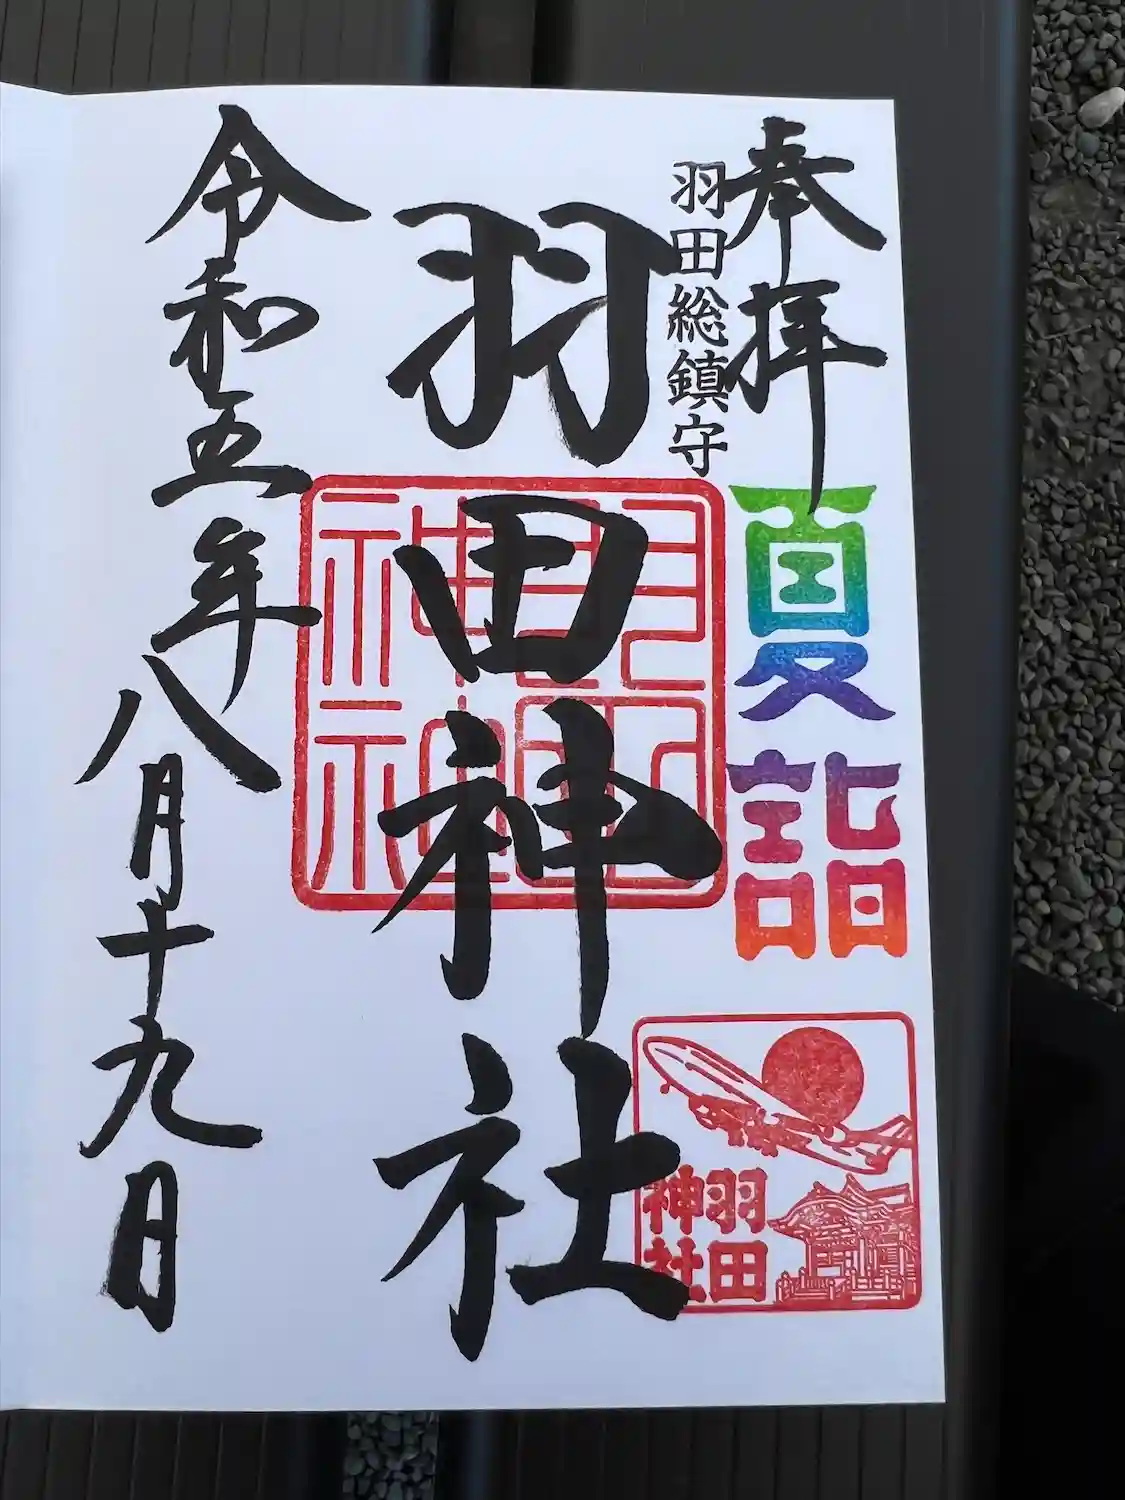 奉拝
夏詣
羽田総鎮守
羽田神社
羽田
神社
令和五年八月十九日